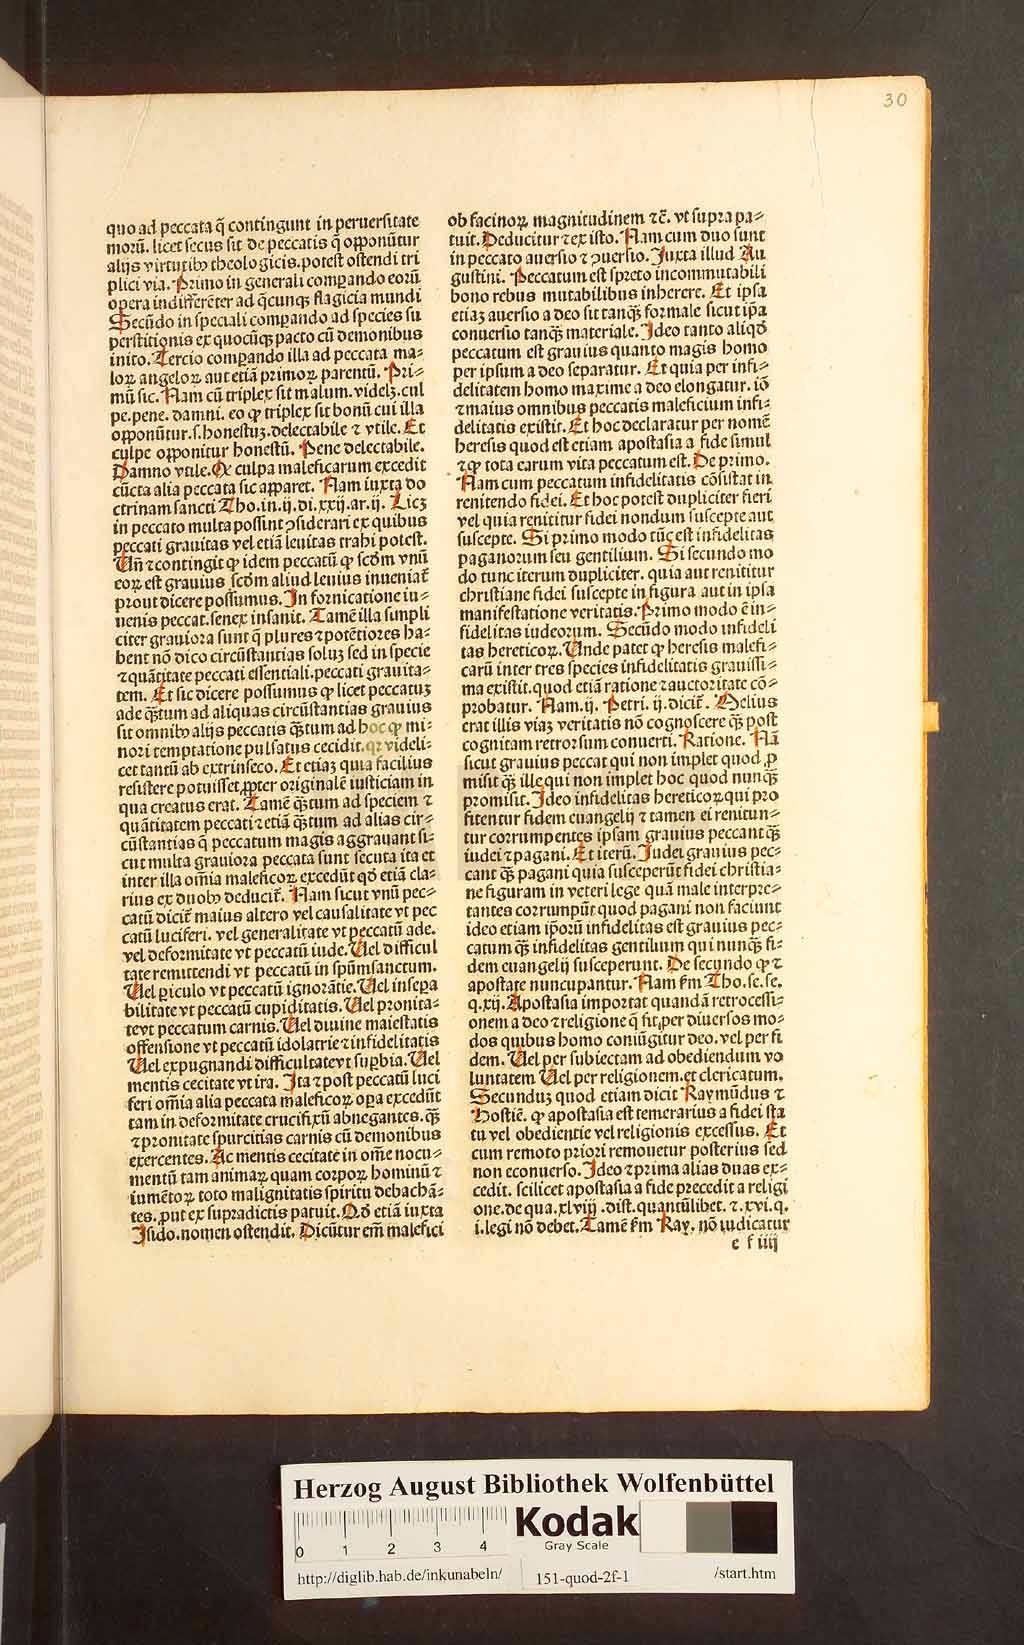 30
quo ad peccata q̃ contingunt in peruersitate
morũ. licet secus sit de peccatis q̃ opponũtur
alijs virtutibꝰ theologicis. potest ostendi tri
plici via. Primo in generali comꝑando eorũ
opera indifferẽter ad q̃cunqꝫ flagicia mundi
Secũdo in speciali comꝑando ad species su
perstitionis ex quocũqꝫ pacto cũ demonibus
inito. Tercio comꝑando illa ad peccata ma⸗
loꝝ angeloꝝ aut etiã primoꝝ parentũ. Pri⸗
mũ sic. Nam cũ triplex sit malum. videlꝫ. cul
pe. pene. damni. eo ꝙ triplex sit bonũ cui illa
opponũtur. s. honestuꝫ. delectabile ⁊ vtile. Et
culpe opponitur honestũ. Pene delectabile.
Damno vtile. Qꝫ culpa maleficarum excedit
cũcta alia peccata sic apparet. Nam iuxta do
ctrinam sancti Tho. in. ij. di. xxij. ar. ij. Licꝫ
in peccato multa possint ꝯsiderari ex quibus
peccati grauitas vel etiã leuitas trahi potest.
Vñ ⁊ contingit ꝙ idem peccatũ ꝙ scd̃m vnũ
eoꝝ est grauius scd̃m aliud leuius inueniat̃
prout dicere possumus. In fornicatione iu⸗
uenis peccat. senex insanit. Tamẽ illa simpli
citer grauiora sunt q̃ plures ⁊ potẽtiores ha⸗
bent nõ dico circũstantias soluꝫ sed in specie
⁊ quãtitate peccati essentiali. peccati grauita⸗
tem. Et sic dicere possumus ꝙ licet peccatuꝫ
ade q̃ꝫtum ad aliquas circũstantias grauius
sit omnibꝰ alijs peccatis q̃ꝫtum ad hoc ꝙ mi⸗
nori temptatione pulsatus cecidit. qꝛ videli⸗
cet tantũ ab extrinseco. Et etiaꝫ quia facilius
resistere potuisset ꝓpter originalẽ iusticiam in
qua creatus erat. Tamẽ q̃ꝫtum ad speciem ⁊
quãtitatem peccati ⁊ etiã q̃ꝫtum ad alias cir⸗
cũstantias q̃ peccatum magis aggrauant si⸗
cut multa grauiora peccata sunt secuta ita et
inter illa om̃ia maleficoꝝ excedũt qd̃ etiã cla⸗
rius ex duobꝰ deducit̃. Nam sicut vnũ pec⸗
catũ dicit̃ maius altero vel causalitate vt pec
catũ luciferi. vel generalitate vt peccatũ ade.
vel deformitate vt peccatũ iude. Uel difficul
tate remittendi vt peccatũ in spũmsanctum.
Uel ꝑiculo vt peccatũ ignorãtie. Uel inseꝑa
bilitate vt peccatũ cupiditatis. Uel pronita⸗
te vt peccatum carnis. Uel diuine maiestatis
offensione vt peccatũ idolatrie ⁊ infidelitatis
Uel expugnandi difficultate vt suꝑbia. Uel
mentis cecitate vt ira. Ita ⁊ post peccatũ luci
feri om̃ia alia peccata maleficoꝝ oꝑa excedũt
tam in deformitate crucifixũ abnegantes. q̃ꝫ
⁊ pronitate spurcitias carnis cũ demonibus
exercentes. Ac mentis cecitate in om̃e nocu⸗
mentũ tam animaꝝ quam corpoꝝ hominũ ⁊
iumẽtoꝝ toto malignitatis spiritu debachã⸗
tes. ꝓut ex supradictis patuit. Qd̃ etiã iuxta
Isido. nomen ostendit. Dicũtur em̃ malefici
ob facinoꝝ magnitudinem ⁊c̃. vt supra pa⸗
tuit. Deducitur ⁊ ex isto. Nam cum duo sunt
in peccato auersio ⁊ ꝯuersio. Iuxta illud Au
gustini. Peccatum est spreto incommutabili
bono rebus mutabilibus inherere. Et ipsa
etiaꝫ auersio a deo sit tanq̃ꝫ formale sicut ip̃a
conuersio tanq̃ꝫ materiale. Ideo tanto aliqd̃
peccatum est grauius quanto magis homo
per ipsum a deo separatur. Et quia per infi⸗
delitatem homo maxime a deo elongatur. iõ
⁊ maius omnibus peccatis maleficium infi⸗
delitatis existit. Et hoc declaratur per nomẽ
heresis quod est etiam apostasia a fide simul
⁊ ꝙ tota earum vita peccatum est. De primo.
Nam cum peccatum infidelitatis cõsistat in
renitendo fidei. Et hoc potest dupliciter fieri
vel quia renititur fidei nondum suscepte aut
suscepte. Si primo modo tũc est infidelitas
paganorum seu gentilium. Si secundo mo
do tunc iterum dupliciter. quia aut renititur
christiane fidei suscepte in figura aut in ipsa
manifestatione veritatis. Primo modo ẽ in⸗
fidelitas iudeorum. Secũdo modo infideli
tas hereticoꝝ. Unde patet ꝙ heresis malefi⸗
carũ inter tres species infidelitatis grauissi⸗
ma existit. quod etiã ratione ⁊ auctoritate cõ⸗
probatur. Nam. ij. Petri. ij. dicit̃. Melius
erat illis viaꝫ veritatis nõ cognoscere q̃ꝫ post
cognitam retrorsum conuerti. Ratione. Nã
sicut grauius peccat qui non implet quod ꝓ
misit q̃ꝫ ille qui non implet hoc quod nunq̃ꝫ
promisit. Ideo infidelitas hereticoꝝ qui pro
fitentur fidem euangelij ⁊ tamen ei renitun⸗
tur corrumpentes ipsam grauius peccant q̃ꝫ
iudei ⁊ pagani. Et iterũ. Iudei grauius pec⸗
cant q̃ꝫ pagani quia susceperũt fidei christia⸗
ne figuram in veteri lege quã male interpre⸗
tantes corrumpũt quod pagani non faciunt
ideo etiam ip̃orũ infidelitas est grauius pec⸗
catum q̃ꝫ infidelitas gentilium qui nunq̃ꝫ fi⸗
dem euangelij susceperunt. De secundo ꝙ ⁊
apostate nuncupantur. Nam s̃m Tho. se. se.
q. xij. Apostasia importat quandã retrocessi⸗
onem a deo ⁊ religione q̃ fit per diuersos mo⸗
dos quibus homo coniũgitur deo. vel per fi
dem. Uel per subiectam ad obediendum vo
luntatem Uel per religionem. et clericatum.
Secunduꝫ quod etiam dicit Raymũdus ⁊
Hostiẽ. ꝙ apostasia est temerarius a fidei sta
tu vel obedientie vel religionis excessus. Et
cum remoto priori remouetur posterius sed
non econuerso. Ideo ⁊ prima alias duas ex⸗
cedit. scilicet apostasia a fide precedit a religi
one. de qua. xlviij. dist. quantũlibet. ⁊. xvi. q.
i. legi nõ debet. Tamẽ s̃m Ray. nõ iudicatur
e f iiij
Herzog August Bibliothek Wolfenbüttel
0 1 2 3 4
Kodak
Gray Scale
http://diglib.hab.de/inkunabeln/ 151-quod-2f-1 /start.htm